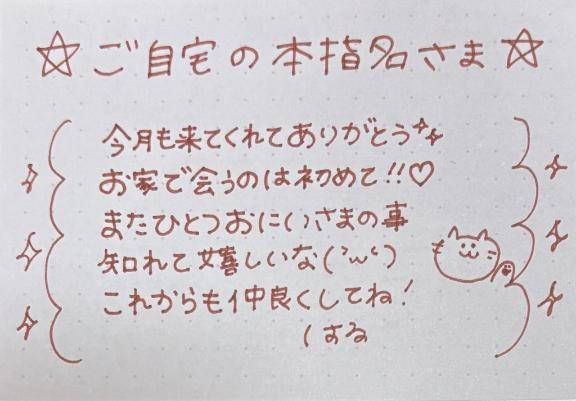 ☆ご自宅の本指名さま☆
今月も来てくれてありがとう
お家で会うのは初めて!!♡
またひとつおにいさまの事
知れて嬉しいな(´ω`)
これからも仲良くしてね!